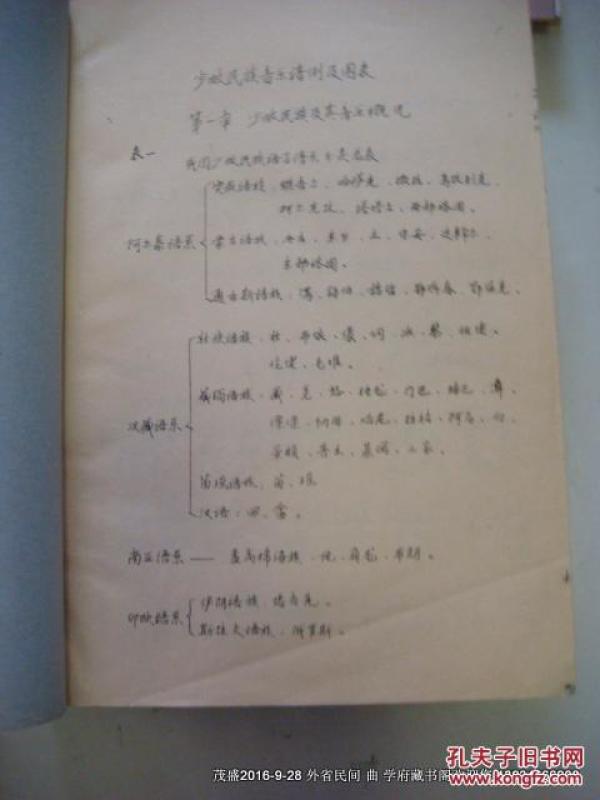 少数民族音乐谱例及图表
第一章 少数民族及其音乐概况
表一
我国少数民族语言谱系分类总表
阿尔泰语系
突厥语族：维吾尔、哈萨克、撒拉、乌孜别克、
塔塔尔、西部裕固。
蒙古语族：蒙古、东乡、土、保安、达斡尔、
东部裕固。
通古斯语族：满、锡伯、赫哲、鄂伦春、鄂温克。
汉藏语系
壮侗语族：壮、布依、傣、侗、水、黎、仫佬、
仡佬、毛难。
藏缅语族：藏、羌、珞、独龙、门巴、珞巴、彝、
傈僳、纳西、哈尼、拉祜、阿昌、白、
景颇、普米、基诺、土家。
苗瑶语族：苗、瑶
汉语：回、畲。
南亚语系——孟高棉语族：佤、崩龙、布朗。
印欧语系
伊朗语族：塔吉克。
斯拉夫语族：俄罗斯。
茂盛2016-9-28 外省民间 曲 学府藏书阁
孔夫子旧书网
KONGFZ.COM